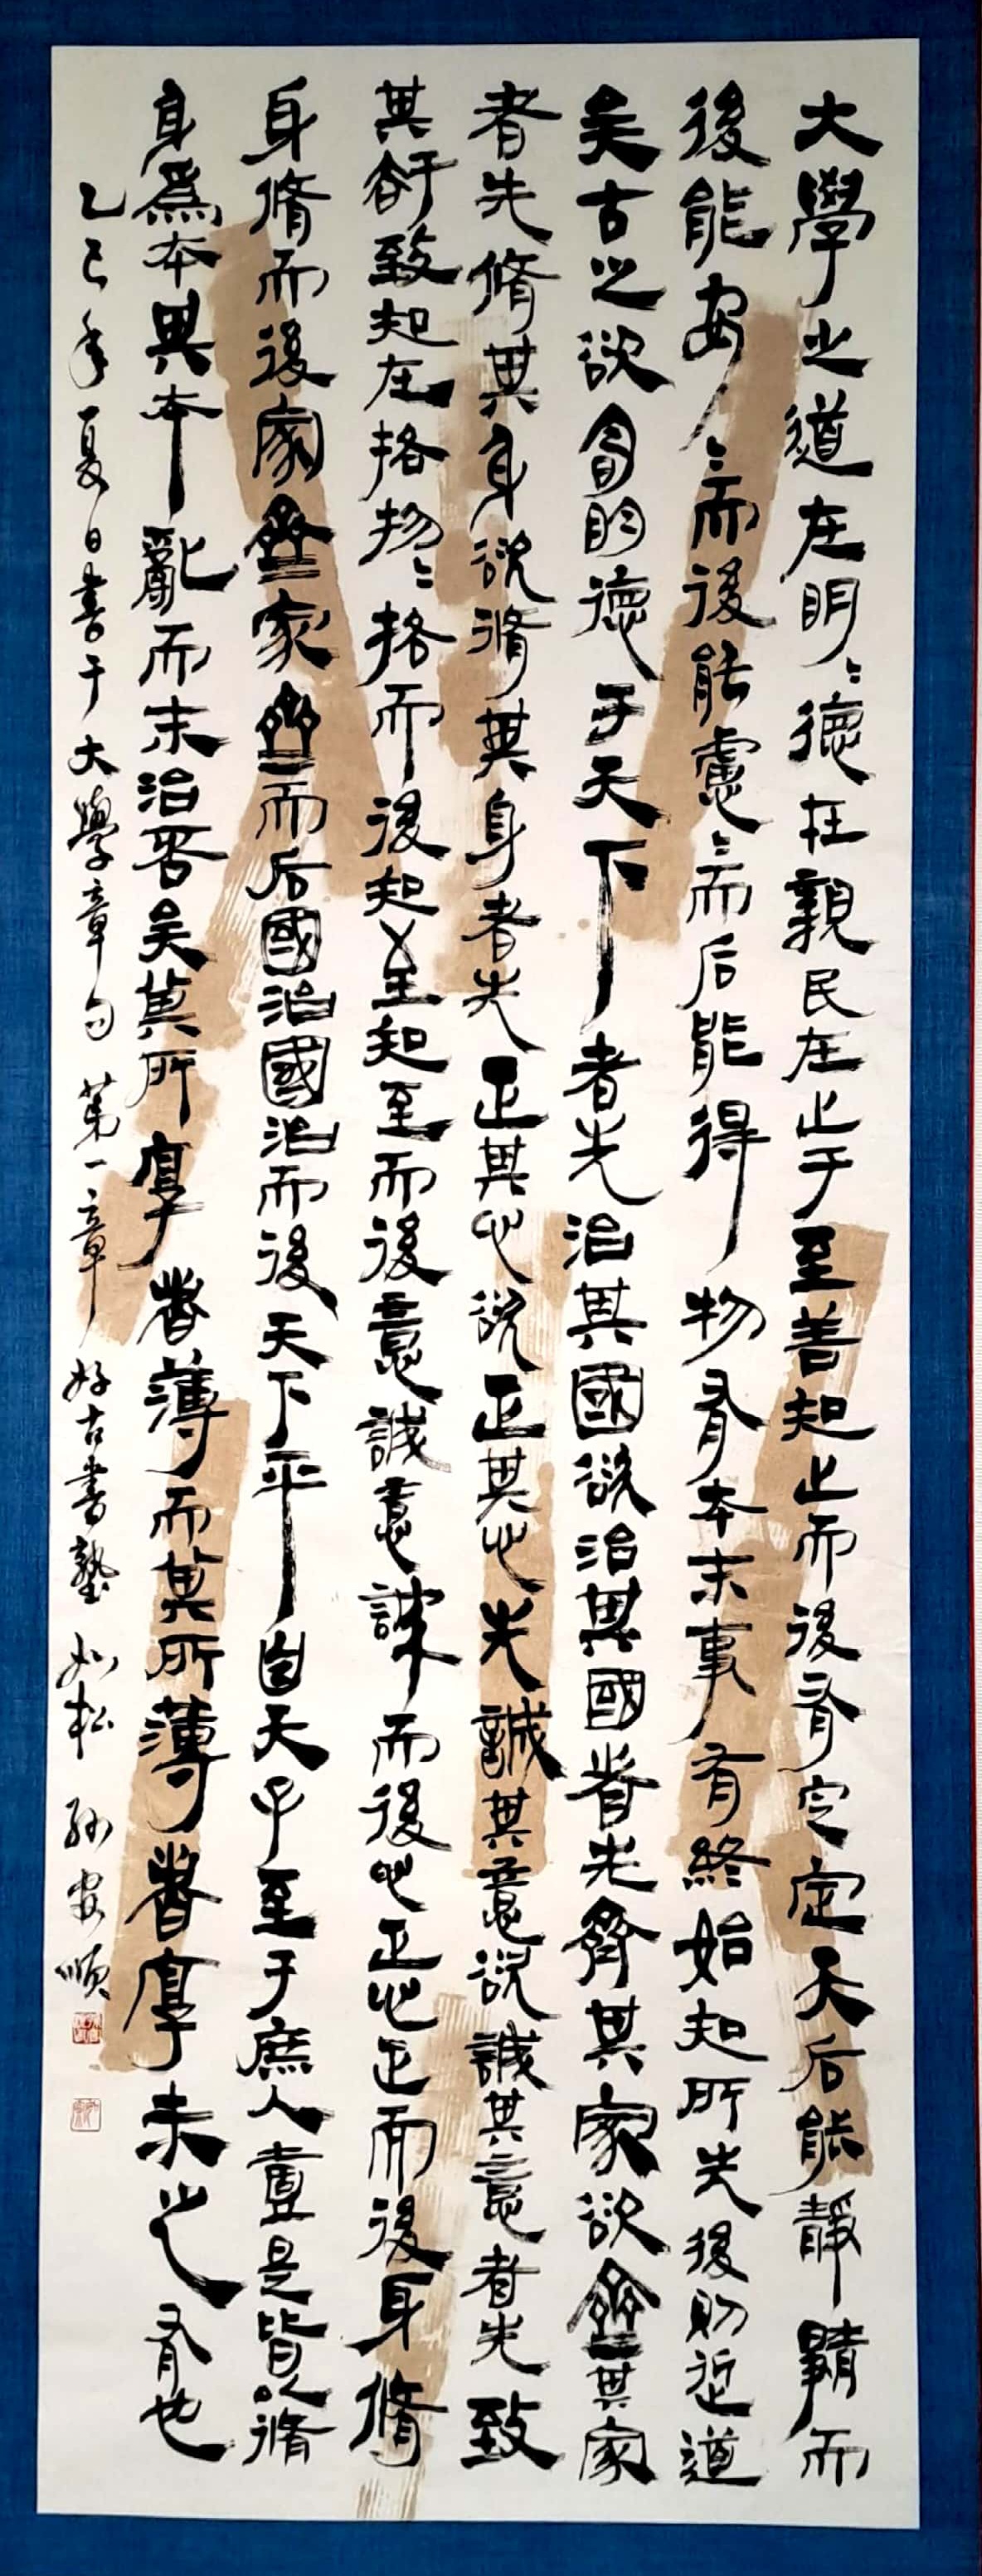 大學之道在明〻德在親民在止于至善知止而後有定定天后能靜靜而
後能安〻而後能慮〻而后能得物有本末事有終始知所先後則近道
矣古之欲明明德于天下者先治其國欲治其國者先齊其家欲齊其家
者先脩其身欲脩其身者先正其心欲正其心先誠其意欲誠其意者先致
其知致知在格物〻格而後知〻至知至而後意誠意誠而後心正心正而後身脩
身脩而後家齊家齊而后國治國治而後天下平自天子至于庶人壹是皆以脩
身為本其本亂而末治否矣其所厚者薄而其所薄者厚未之有也
乙巳年夏日書于大學章句第一章 好古書塾 如松 孫安順